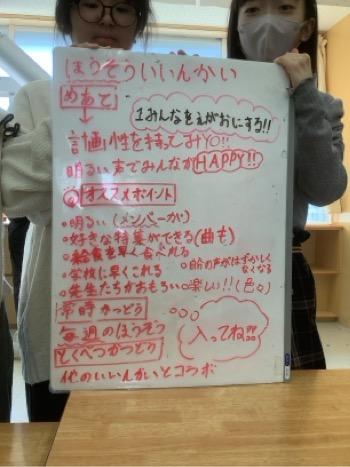 ほうそういいんかい
めあて
1みんなをえがおにする!!
計画性を持ってみYO!!
明るい声でみんながHAPPY!!
オススメポイント
・明るい(メンバーがい)
・好きな特集ができる(曲も)
・給食を早く食べれる
・自分の声がはずかしくなくなる
・学校に早くこれる
・先生たちがおもろい
・楽しい!!(色々)
常時かつどう
毎週のほうそう
とくべつかつどう
他のいいんかいとコラボ
入ってね!!!